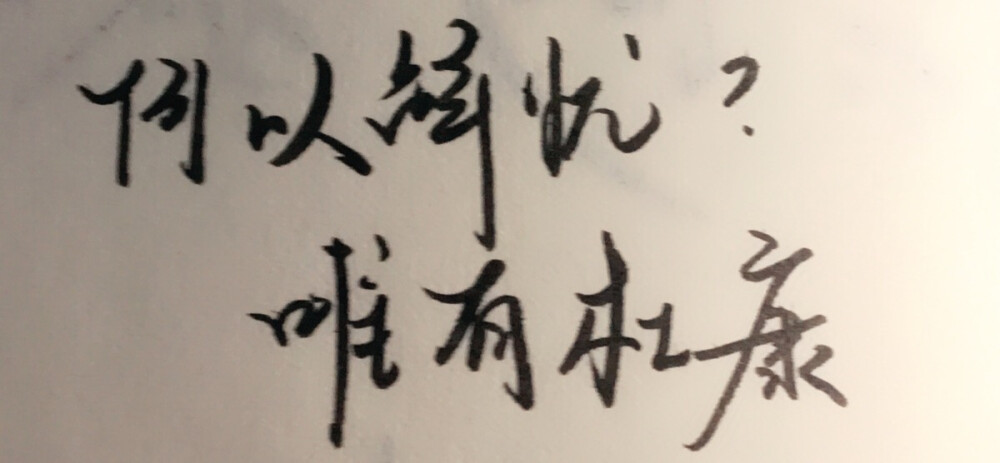 何以解忧？
唯有杜康